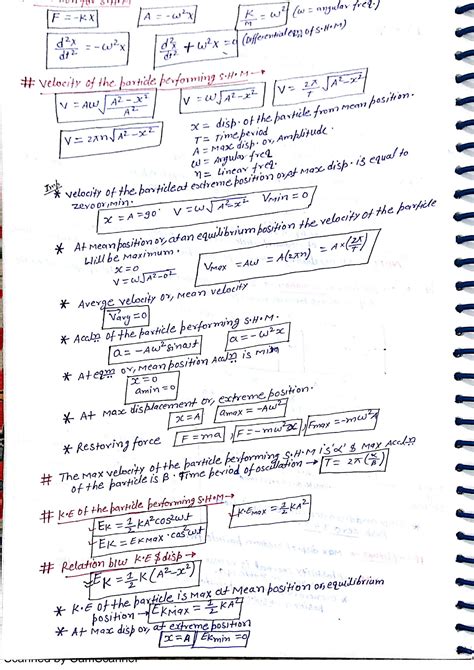 F = -Kx
A = -ω²x
K/m = ω² (ω = angular freq.)
d²x/dt² = -ω²x
d²x/dt² + ω²x = 0 (Differential eqn of S.H.M)
# Velocity of the particle performing S.H.M →
V = Aω√(A² - x²/A²)
V = ω√(A² - x²)
V = 2π/T √(A² - x²)
V = 2πn√(A² - x²)
x = disp. of the particle from mean position.
T = Time period
A = Max disp. or, Amplitude.
ω = Angular freq.
n = Linear freq.
Imp.
* Velocity of the particle at extreme position or, at max disp. is equal to
zero or, min.
x = A = 90° V = ω√(A² - x²) Vmin = 0
* At Mean position or, at an equilibrium position the velocity of the particle
will be maximum.
x = 0
V = ω√(A² - 0²)
Vmax = Aω = A(2πn) = A × (2π/T)
* Averge velocity or, Mean velocity
Vavg = 0
* Accln of the particle performing S.H.M.
a = -Aω² sinωt
a = -ω²x
* At eqm or, Mean position Accln is min
x = 0
amin = 0
* At Max displacement or, extreme position.
x = A
amax = -Aω²
* Restoring force F = ma, F = -mω²x, Fmax = -mω²A
# The max velocity of the particle performing S.H.M is 'α' & Max Accln
of the particle is β. Time period of oscillation → T = 2π(α/β)
# K.E of the particle performing S.H.M →
EK = 1/2 KA² cos²ωt
EK = EKmax · cos²ωt
K·Emax = 1/2 KA²
# Relation b/w K.E & disp →
EK = 1/2 K(A² - x²)
* K.E of the particle is max at Mean position or, equilibrium
position → EKmax = 1/2 KA²
* At Max disp or, at extreme position
x = A EKmin = 0
Scanned by CamScanner